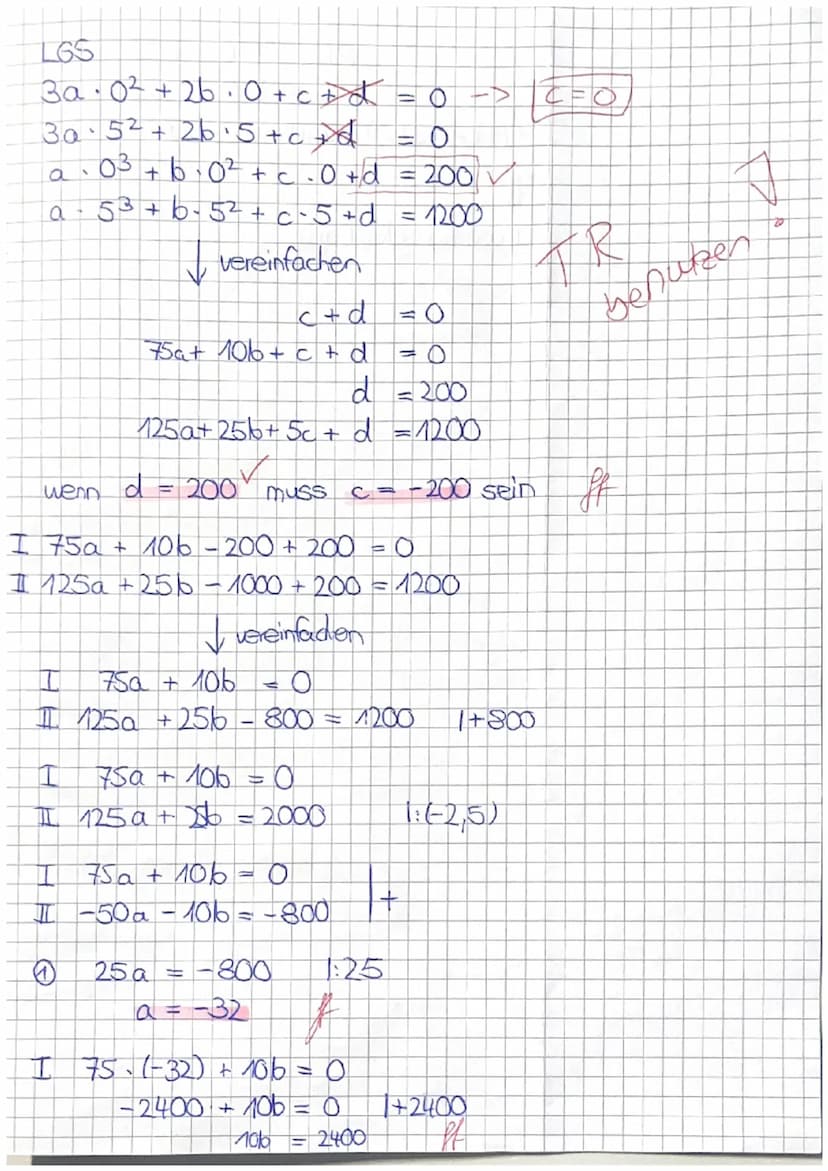 LGS
3a · 0² + 2b · 0 + c + d = 0 -> c = 0
3a · 5² + 2b · 5 + c + d = 0
a · 0³ + b · 0² + c · 0 + d = 200 ✓
a · 5³ + b · 5² + c · 5 + d = 1200
TR
benutzen !
↓ vereinfachen
c + d = 0
75a + 10b + c + d = 0
d = 200
125a + 25b + 5c + d = 1200
wenn d = 200 ✓ muss c = -200 sein ff
I 75a + 10b - 200 + 200 = 0
II 125a + 25b - 1000 + 200 = 1200
↓ vereinfachen
I 75a + 10b = 0
II 125a + 25b - 800 = 1200 |+800
I 75a + 10b = 0
II 125a + 25b = 2000 |:(-2,5)
I 75a + 10b = 0
II -50a - 10b = -800 |+
① 25a = -800 |:25
a = -32 f
I 75 · (-32) + 10b = 0
-2400 + 10b = 0 |+2400
10b = 2400 ff